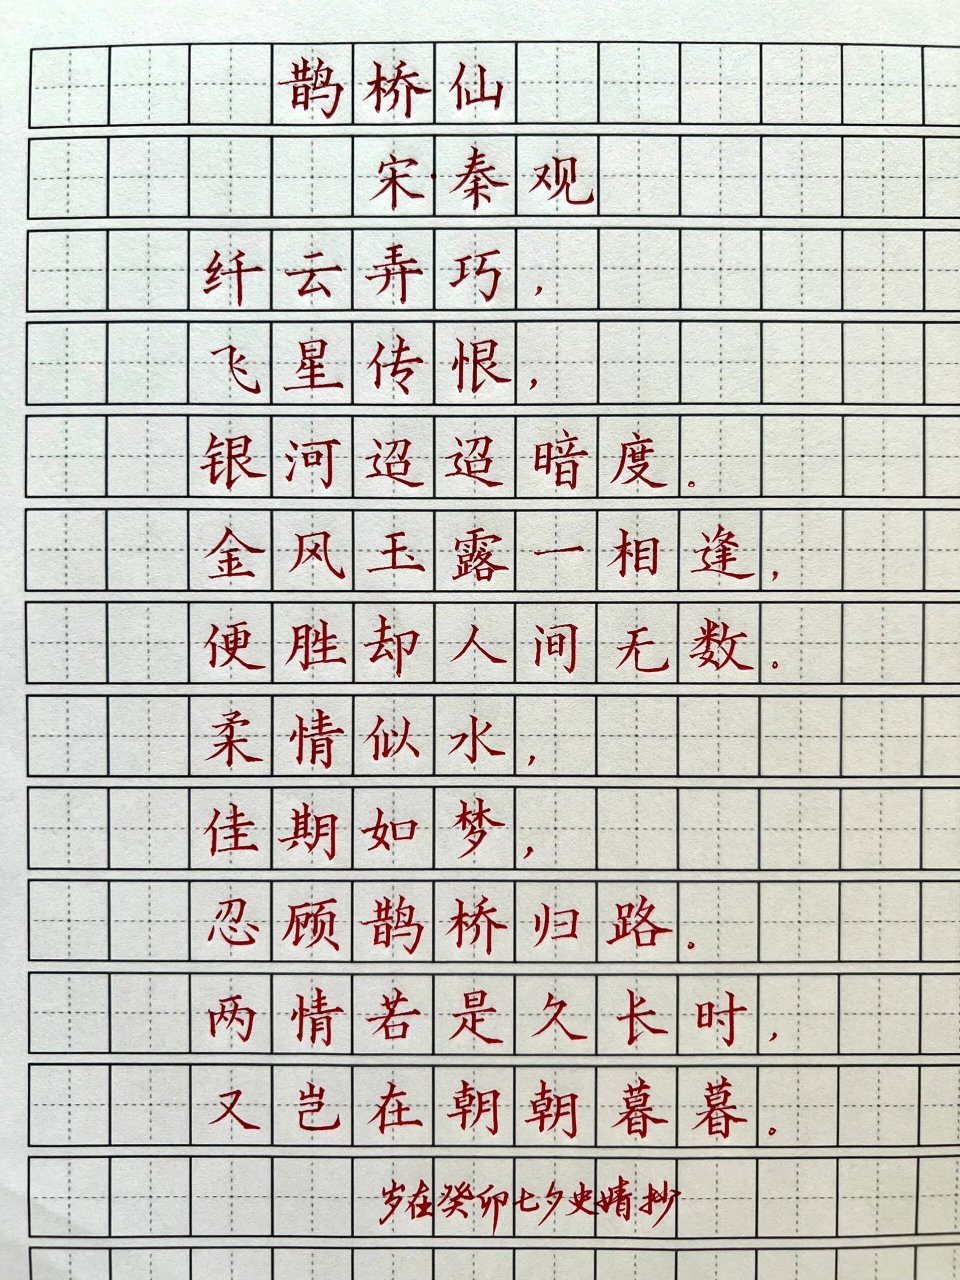 鹊桥仙
宋·秦观
纤云弄巧，
飞星传恨，
银河迢迢暗度。
金风玉露一相逢，
便胜却人间无数。
柔情似水，
佳期如梦，
忍顾鹊桥归路。
两情若是久长时，
又岂在朝朝暮暮。
岁在癸卯七夕史婧抄